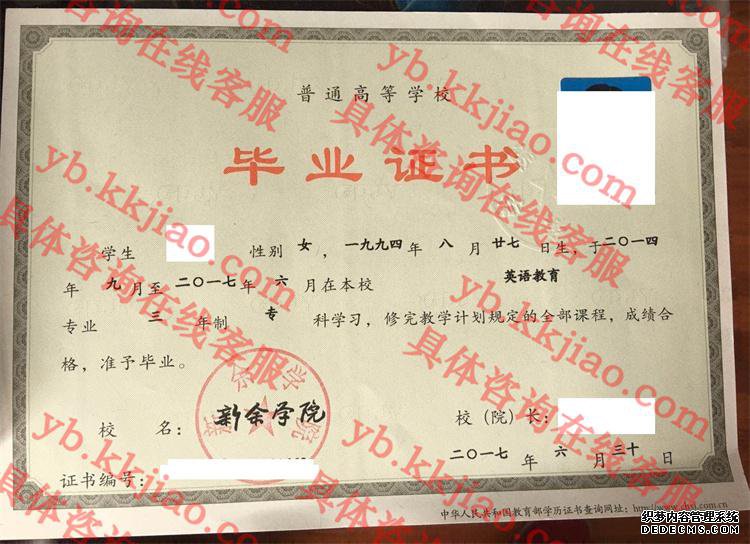 普通高等学校
毕业证书
学生 性别 女，一九九四年 八 月 廿七 日生，于二〇一四
年 九 月至 二〇一七 年 六 月在本校 英语教育
专业 三 年制 专 科学习，修完教学计划规定的全部课程，成绩合
格，准予毕业。
校 名：新余学院 校（院）长：
二〇一七 年 六 月 三十 日
证书编号：
中华人民共和国教育部学历证书查询网址：
新余学院
具体咨询在线客服
yb.kkjiao.com
具体咨询在线客服
yb.kkjiao.com
具体咨询在线客服
yb.kkjiao.com
具体咨询在线客服
yb.kkjiao.com
具体咨询在线客服
yb.kkjiao.com
织梦内容管理系统
DEDECMS.COM